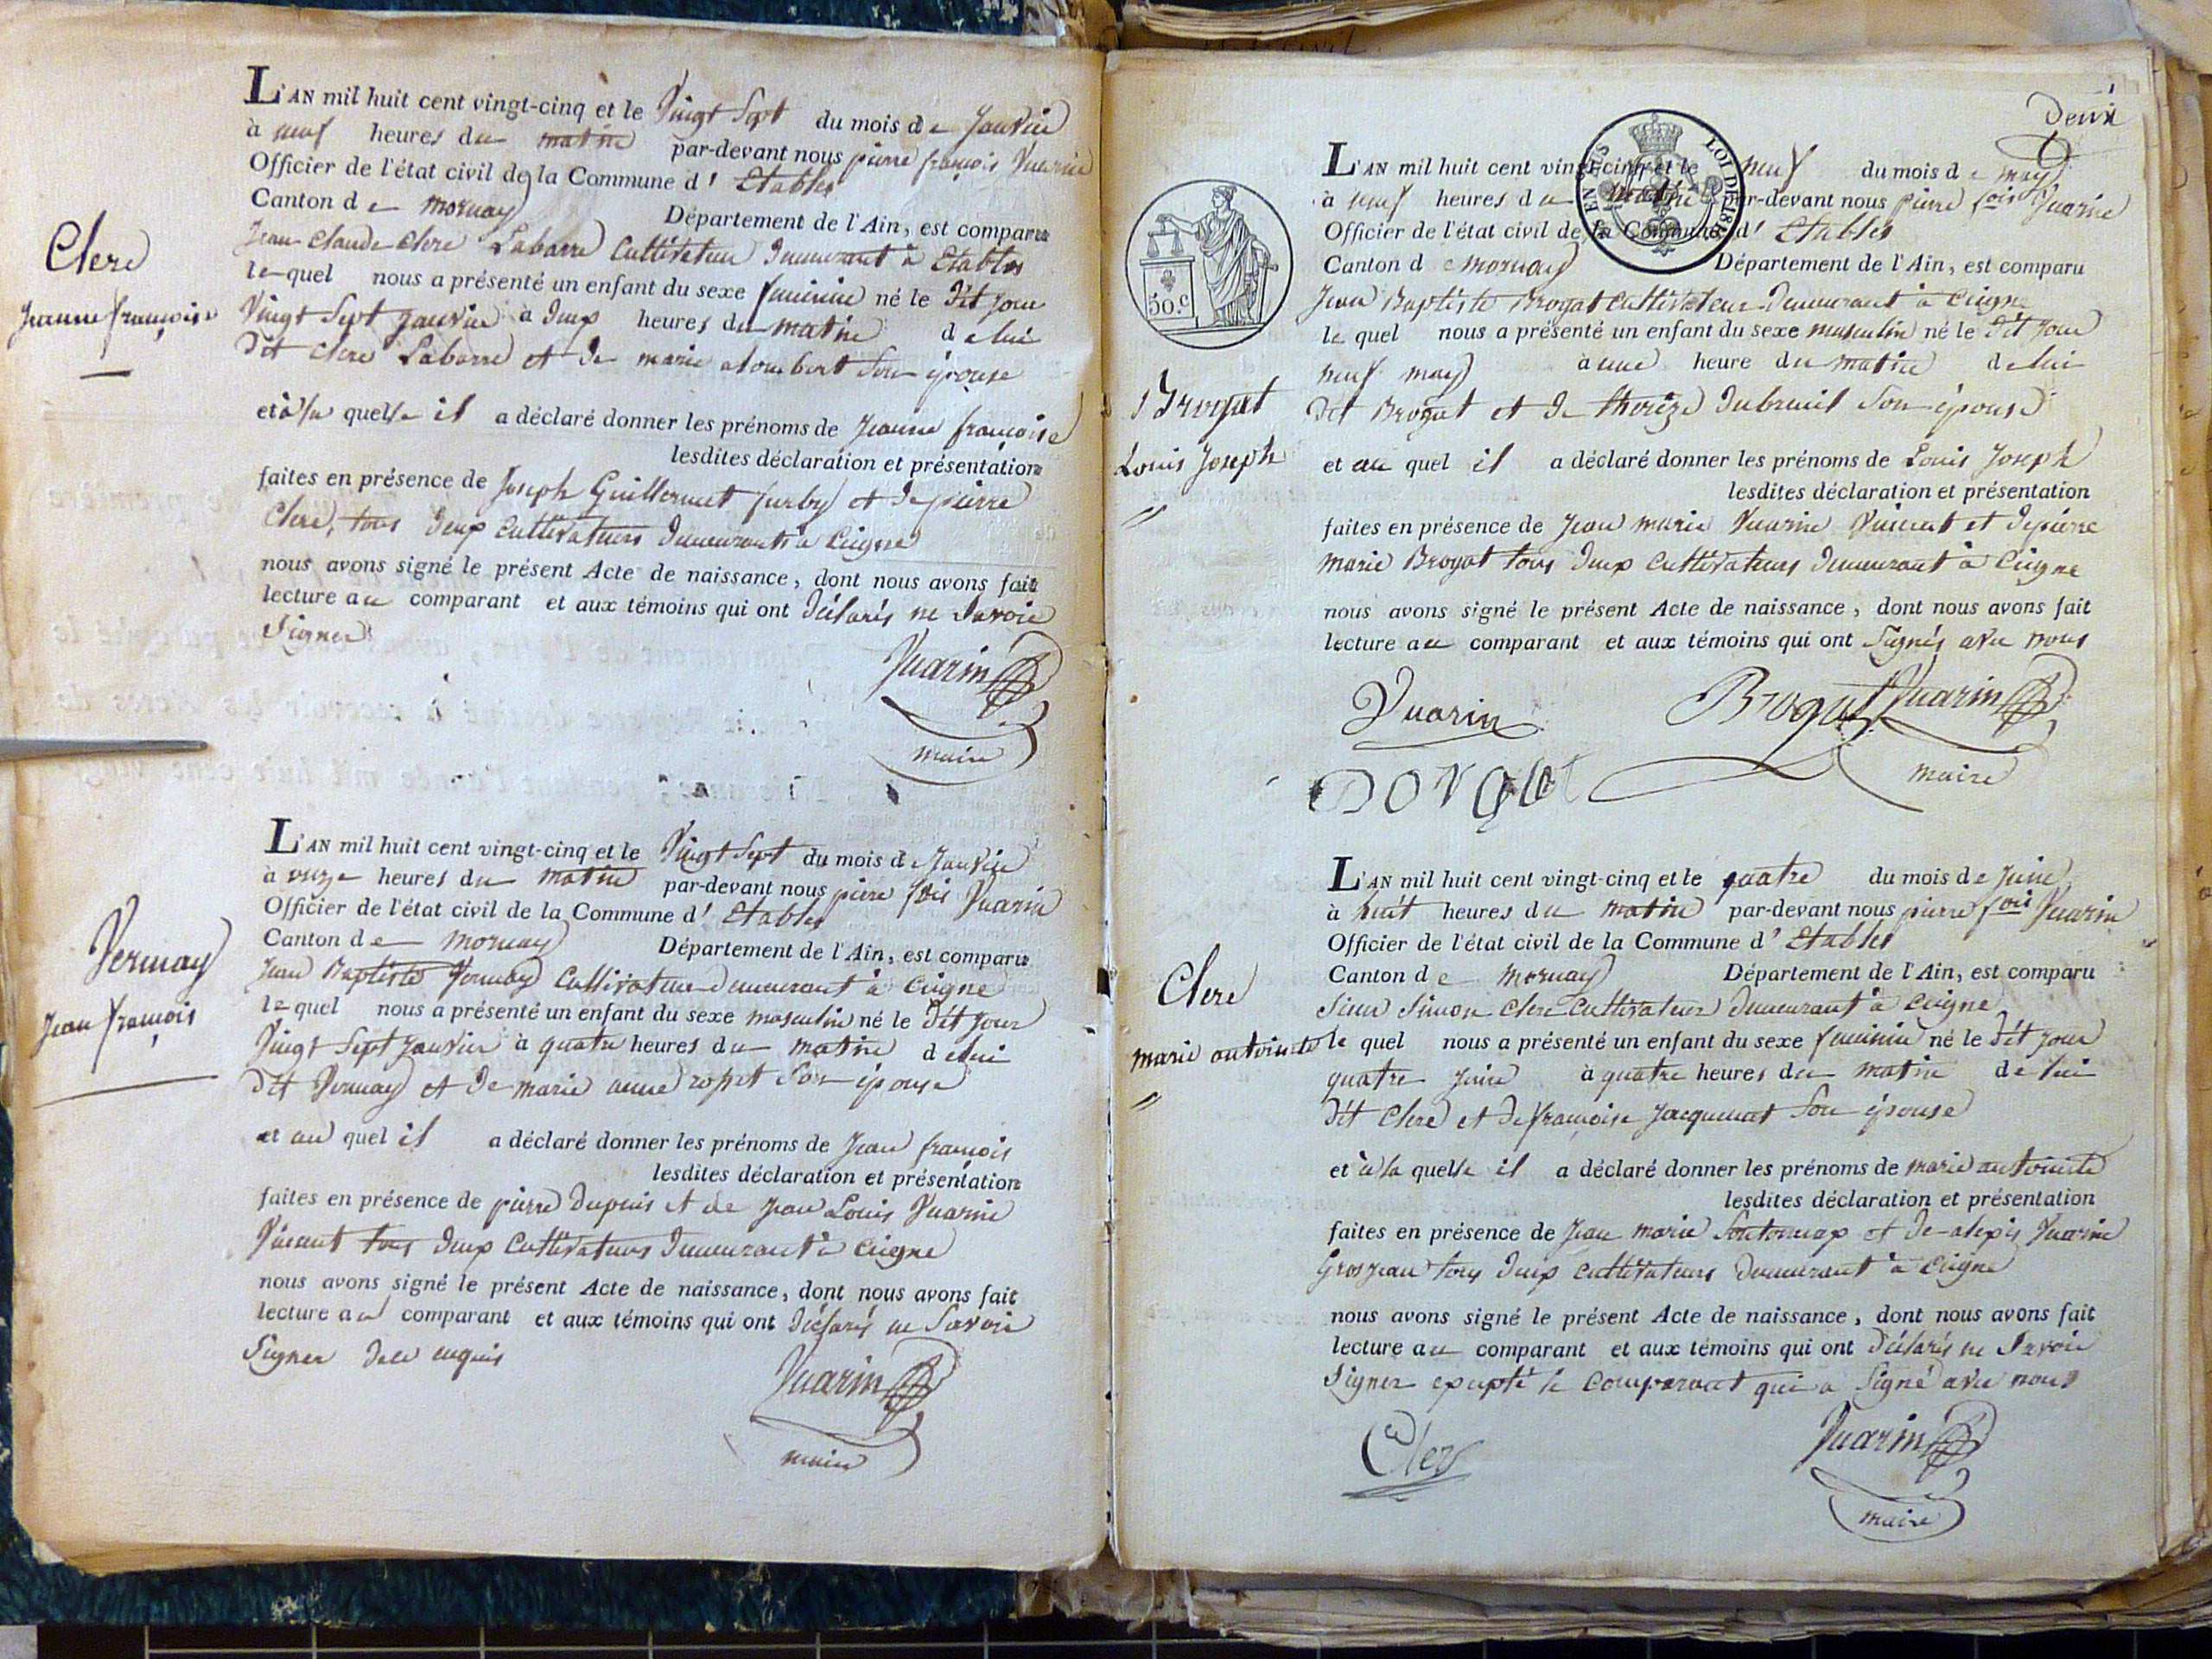 L'AN mil huit cent vingt-cinq et le Vingt Sept du mois de Janvier
à neuf heures du matin par-devant nous pierre françois Vuarin
Officier de l'état civil de la Commune d' Etables
Canton de mornay Département de l'Ain, est comparu
Jean Claude Clere Labarre Cultivateur demeurant à Etables
Clere
Jeanne françoise
lequel nous a présenté un enfant du sexe feminin né le dit jour
Vingt Sept janvier à deux heures du matin de lui
dit Clere Labarre et de marie alombert son épouse
et à la quelle il a déclaré donner les prénoms de Jeanne françoise
lesdites déclaration et présentation
faites en présence de Joseph Guillermet furby et de pierre
Clere, tous deux Cultivateurs demeurants à Ceigne
nous avons signé le présent Acte de naissance, dont nous avons fait
lecture au comparant et aux témoins qui ont déclarés ne Savoir
Signer
Vuarin
maire
L'AN mil huit cent vingt-cinq et le Vingt Sept du mois de Janvier
à onze heures du matin par-devant nous pierre fois Vuarin
Officier de l'état civil de la Commune d' Etables
Canton de mornay Département de l'Ain, est comparu
Jean Baptiste Vernay Cultivateur demeurant à Ceigne
Vernay
Jean françois
lequel nous a présenté un enfant du sexe masculin né le dit jour
Vingt Sept janvier à quatre heures du matin de lui
dit Vernay et de marie anne son épouse
et au quel il a déclaré donner les prénoms de Jean françois
lesdites déclaration et présentation
faites en présence de pierre Dupuis et de Jean Louis Vuarin
Vincent tous deux Cultivateurs demeurant à Ceigne
nous avons signé le présent Acte de naissance, dont nous avons fait
lecture au comparant et aux témoins qui ont déclarés ne Savoir
Signer de ce enquis
Vuarin
maire
Deux
EN SUS LOI DE 18
50.c
L'AN mil huit cent vingt-cinq et le neuf du mois de may
à neuf heures du matin par-devant nous pierre fois Vuarin
Officier de l'état civil de la Commune d' Etables
Canton de mornay Département de l'Ain, est comparu
Jean Baptiste Brogat Cultivateur demeurant à Ceigne
le quel nous a présenté un enfant du sexe masculin né le dit jour
neuf may à une heure du matin de lui
Brogat
Louis Joseph
dit Brogat et de thereze Dubreuil Son épouse
et au quel il a déclaré donner les prénoms de Louis Joseph
lesdites déclaration et présentation
faites en présence de Jean marie Vuarin Vincent et de pierre
marie Brogat tous deux Cultivateurs demeurant à Ceigne
nous avons signé le présent Acte de naissance, dont nous avons fait
lecture au comparant et aux témoins qui ont Signés avec nous
Vuarin Brogat Vuarin
maire
L'AN mil huit cent vingt-cinq et le quatre du mois de Juin
à huit heures du matin par-devant nous pierre fois Vuarin
Officier de l'état civil de la Commune d' Etables
Canton de mornay Département de l'Ain, est comparu
Simon Clere Cultivateur demeurant à Ceigne
Clere
marie antoinette
le quel nous a présenté un enfant du sexe feminin né le dit jour
quatre Juin à quatre heures du matin de lui
dit Clere et de françoise Jacquemet Son épouse
et à la quelle il a déclaré donner les prénoms de marie antoinette
lesdites déclaration et présentation
faites en présence de Jean marie et de alexis Vuarin
Grosjean tous deux Cultivateurs demeurant à Ceigne
nous avons signé le présent Acte de naissance, dont nous avons fait
lecture au comparant et aux témoins qui ont déclarés ne Savoir
Signer expepté le Comparant qui a Signé avec nous
Clere Vuarin
maire